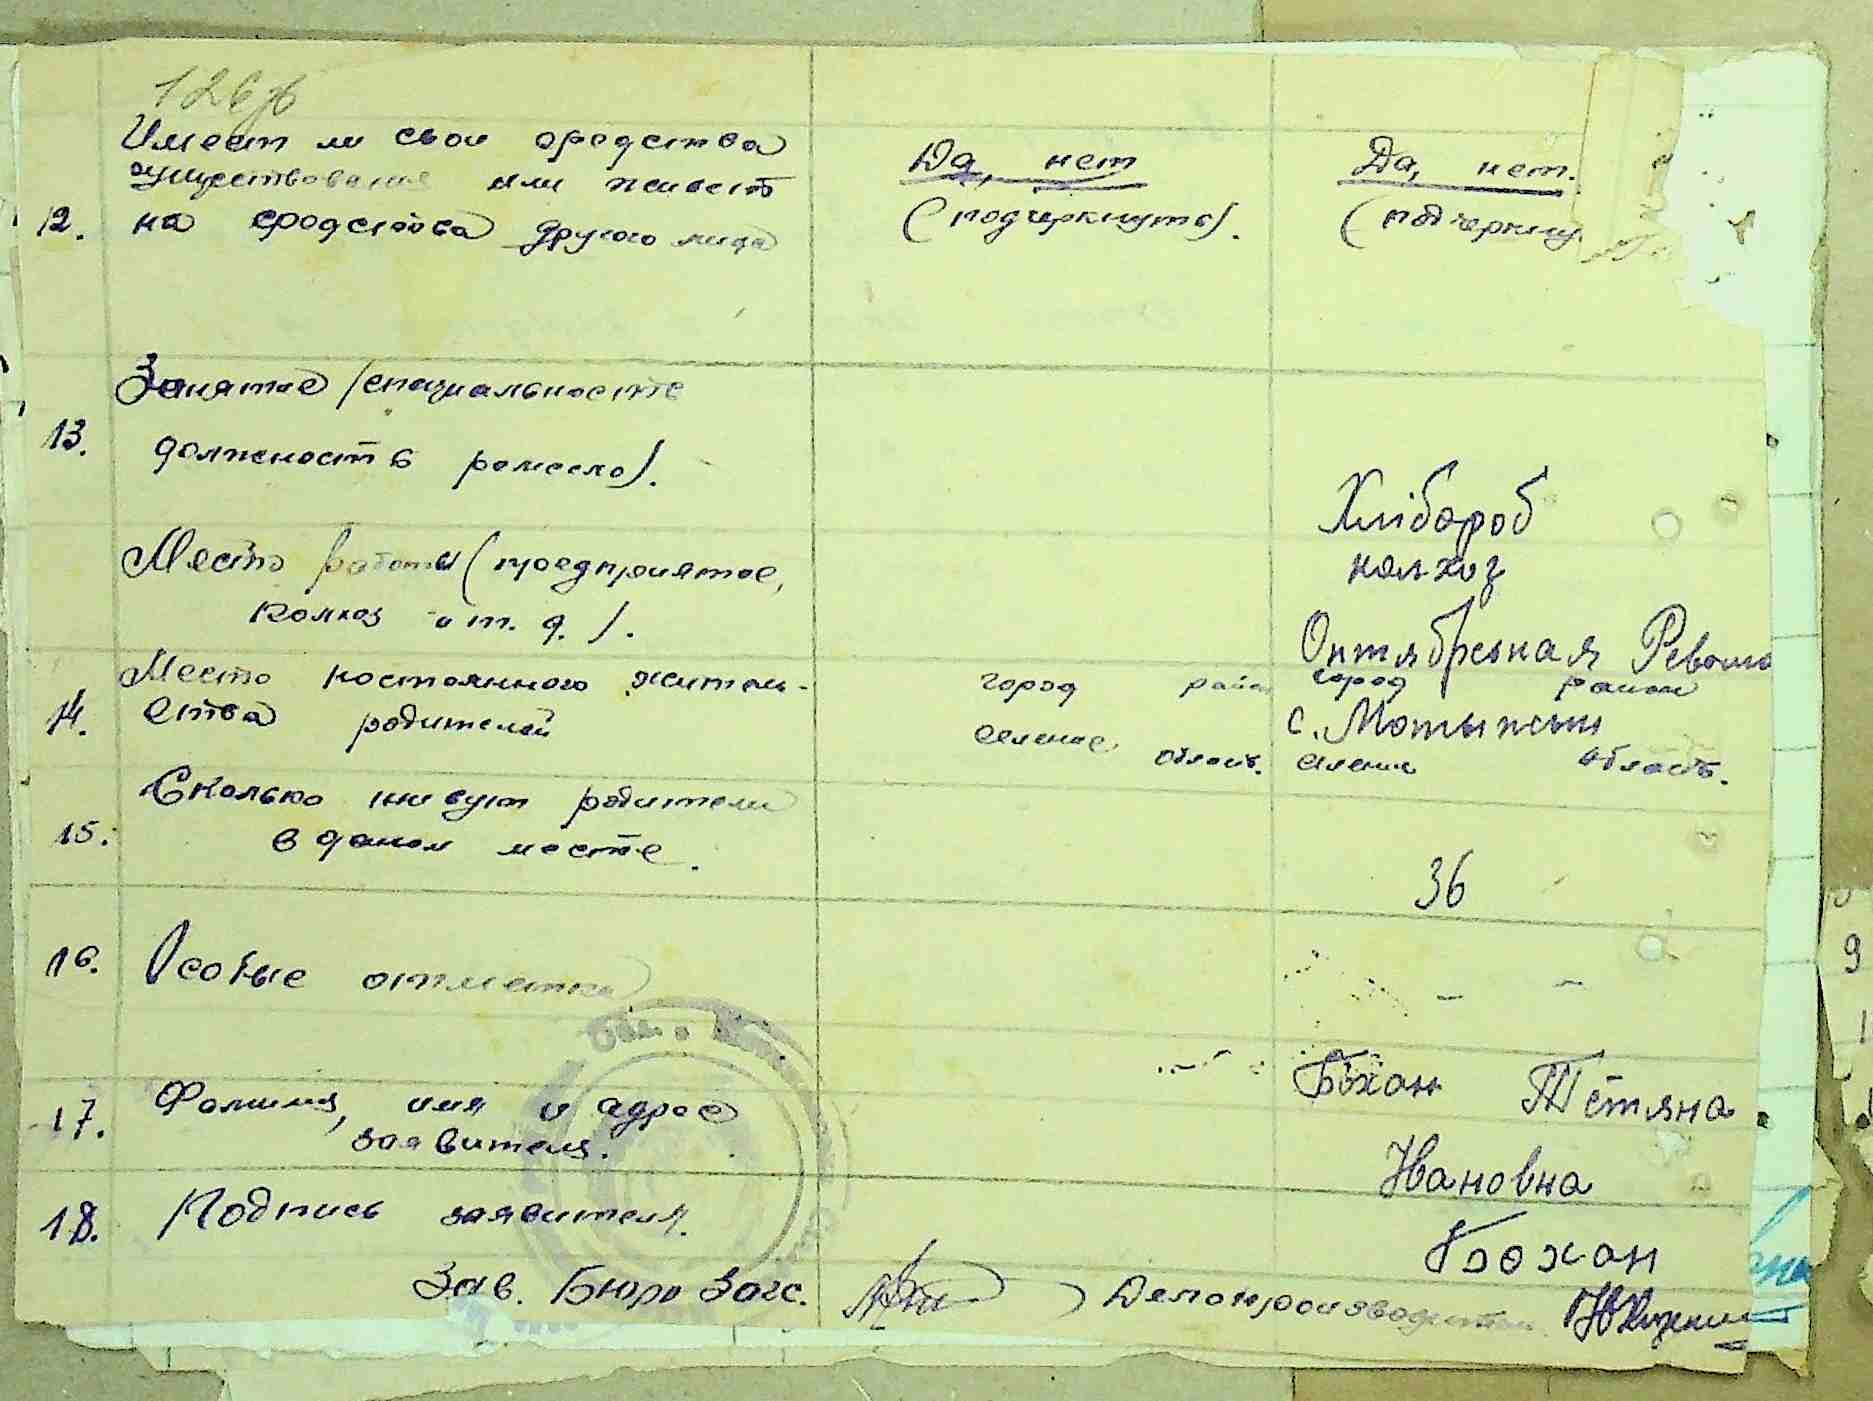 126
Имеет ли свои средства
существования или живет
12. на средства другого лица
Да, нет
(подчеркнуть).
Да, нет.
(подчеркну
Занятие (специальность
13. должность ремесло).
Хлібороб
Место работы (предприятие,
колхоз и т. д.).
колхоз
Октябрьная Револю
Место постоянного житель-
14. ства родителей
город район
селение область.
город район
с. Мотыжын
селения область.
Сколько живут родители
15. в даном месте.
36
16. Особые отметки
– –
17. Фамилия, имя и адрес
заявителя.
Бохан Тетяна
Ивановна
18. Подпись заявителя.
Бохан
Зав. Бюро Загс.
Делопроизводитель